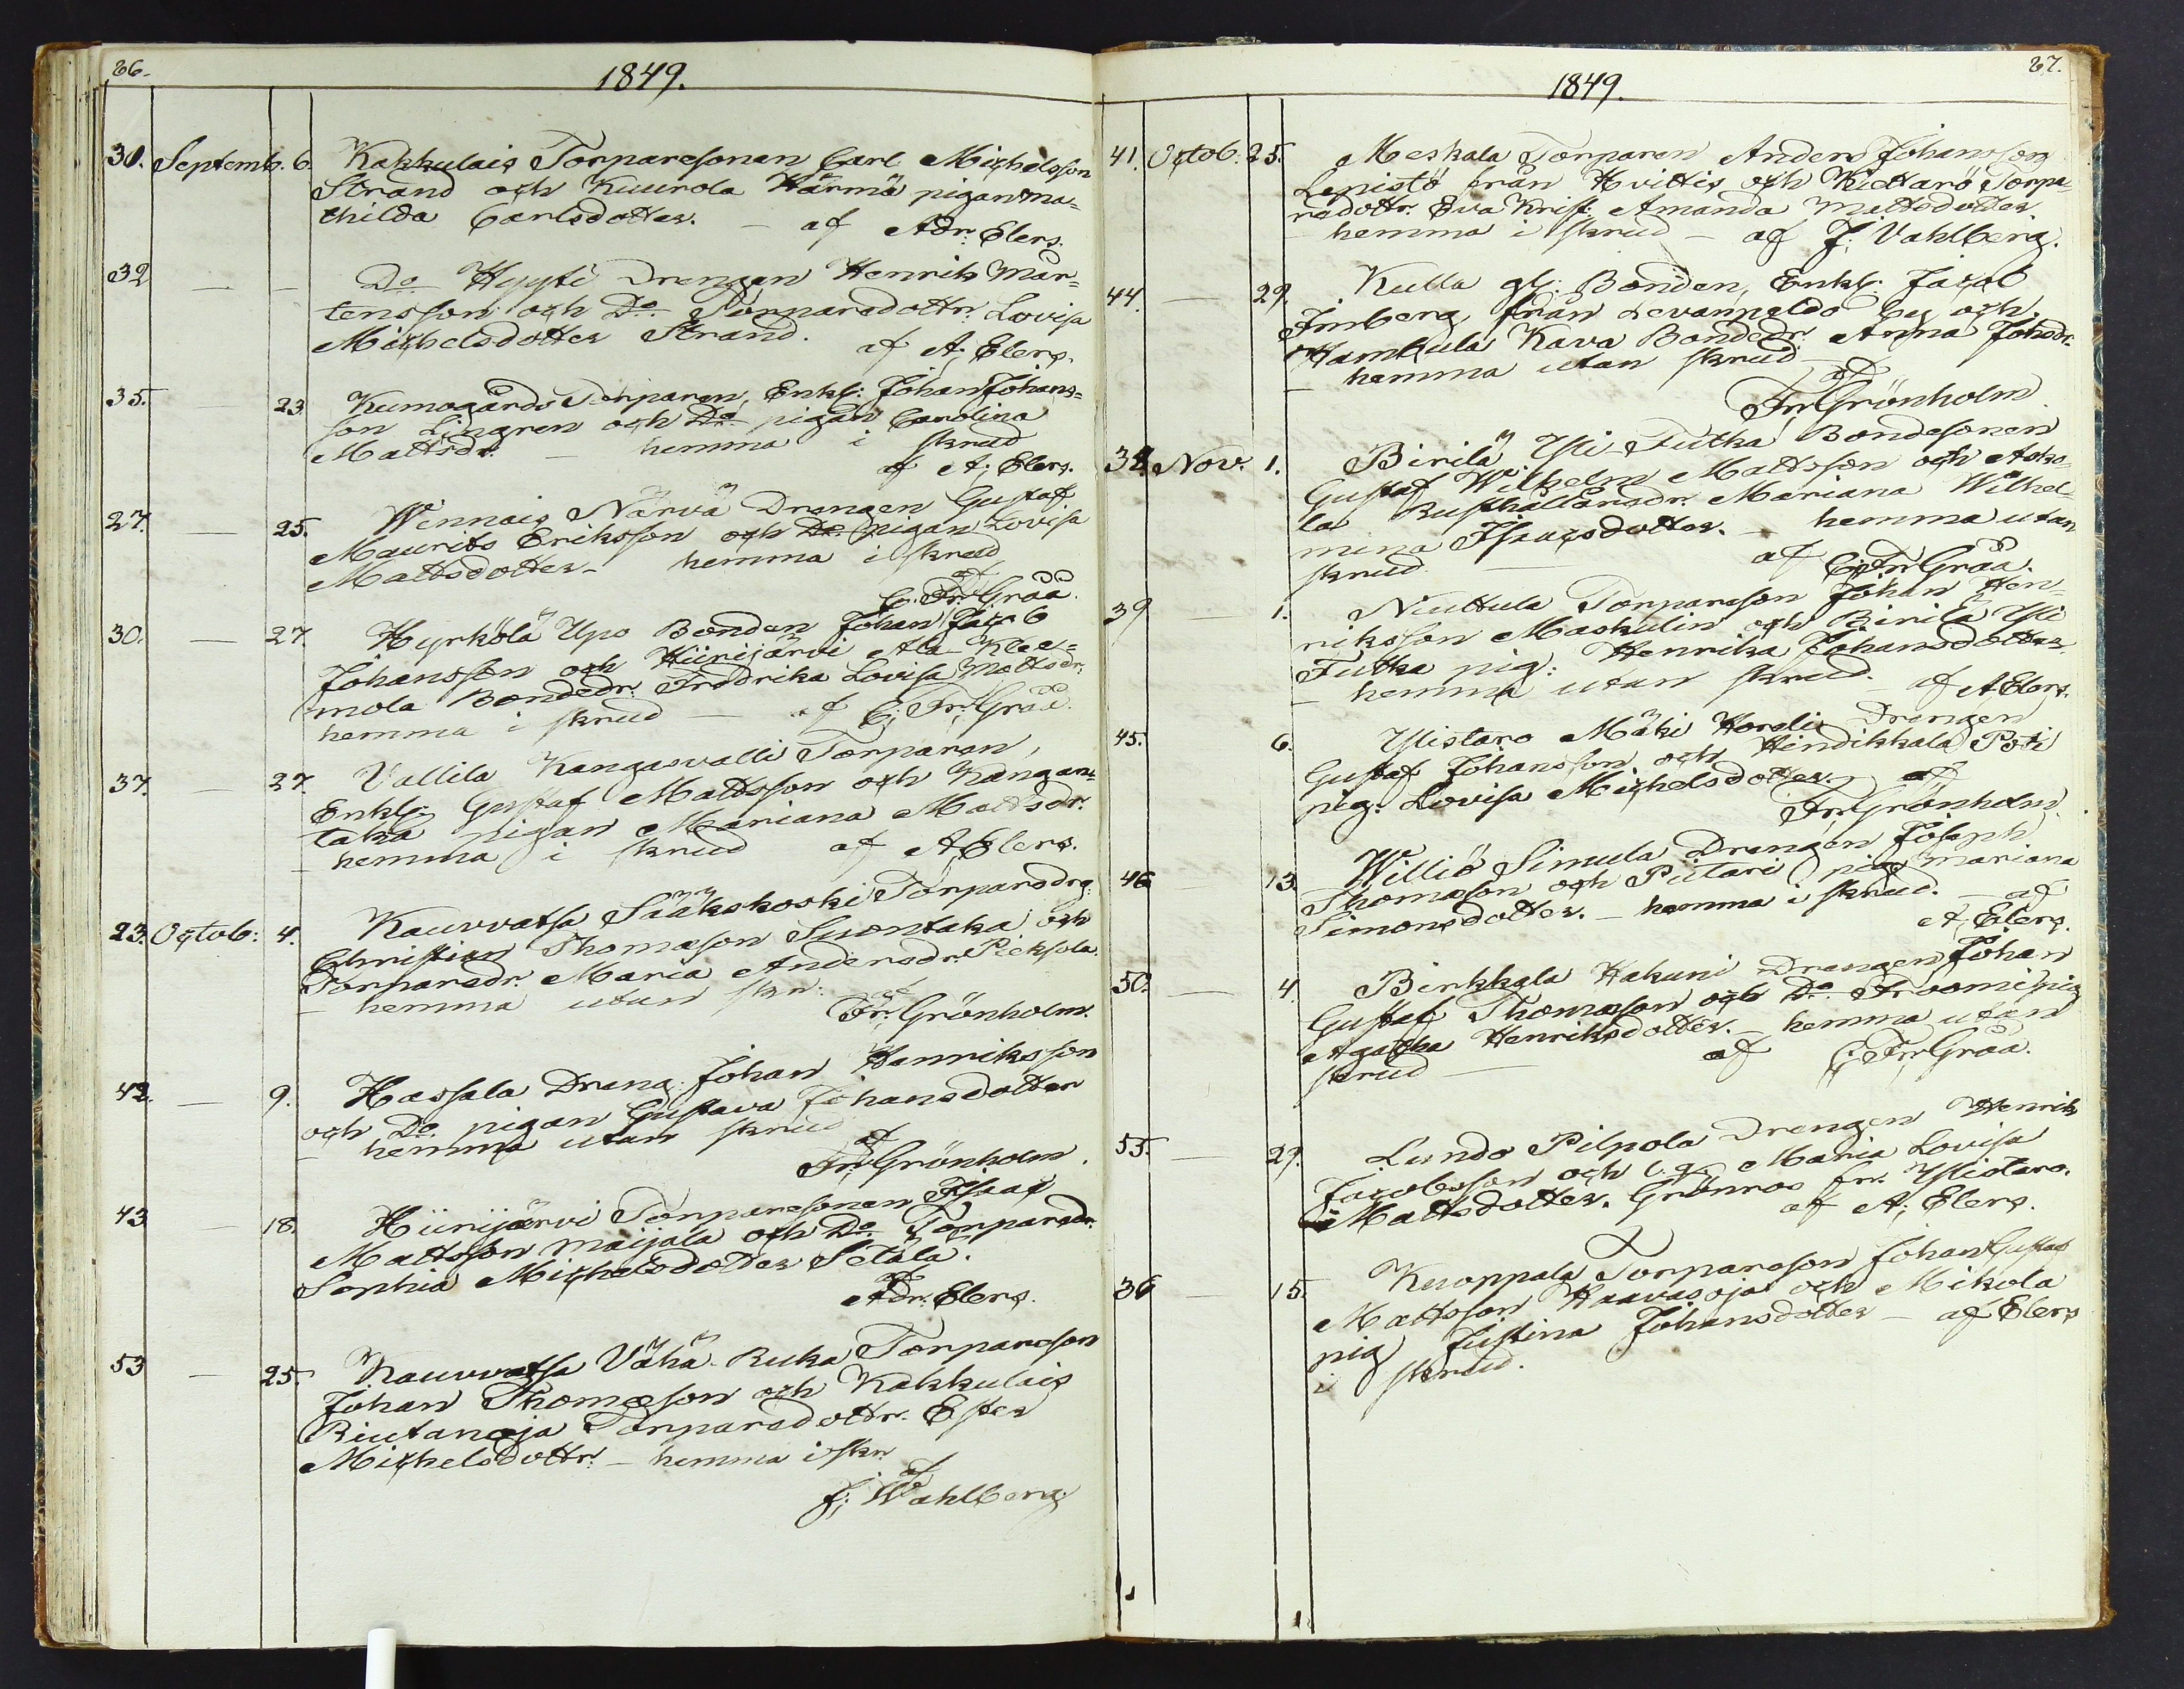 66.
1849.
31. Septemb. 6. Kakkulais Torparesonen Carl Michelsson
Strand och Kuurola Härmä pigan Ma=
thilda Carlsdotter. – af Adr: Elers.
32 — — Do Hyyti Drengen Henrik Mår=
tensson och Do. Torparedottr: Lovisa
Michelsdotter Strand. af A; Elers.
35. — 23. Kumogårds Torparen, Enkl: Johan Johans=
son Lingren och Do pigan Carolina
Mattsdr. – hemma i skrud
af A; Elers.
27. — 25. Wennais Närvä Drengen Gustaf
Maurits Eriksson och Do. pigan Lovisa
Mattsdotter – hemma i skrud
af
C. Fr. Gråå.
30. — 27. Hyrkölä Upo Bonden Johan Jacob
Johansson och Hiirijärvi Ala-Klee=
mola Bondedr. Fredrika Lovisa Mattsdr.
hemma i skrud — af C; Fr; Gråå.
37. — 27. Vallila Kangasvalli Torparen,
Enkl: Gustaf Mattsson och Kangan=
taka pigan Mariana Mattsdr.
– hemma i skrud af A; Elers.
23. Octob: 4. Kauvvatsa Sääkskoski Torparedrg:
Christian Thomasson Suontaka och
Torparedr. Maria Andersdr. Pieksola.
– hemma utan skr: af
Fr; Grönholm.
42. — 9. Hassala Dreng. Johan Henriksson
och Do. pigan Gustava Johansdotter
– hemma utan skrud
af
Fr; Grönholm.
43 — 18. Hiirijärvi Torparesonen Isaac
Mattsson Maijala och Do. Torparedr.
Sophia Michelsdotter Setälä.
af
Adr. Elers.
53 — 25. Kauvvatsa Vähä-Ruka Torpareson
Johan Thomasson och Kakkulais
Riutanoja Torparedottr. Ester
Michelsdottr. – hemma i skr.
af
J; Wahlberg
67.
1849.
41. Octob: 25. Meskala Torparen Anders Johansson
Lepistö från Hvittis och Kiettarö Torpa=
redottr. Eva Krist: Amanda Mattsdotter
– hemma i skrud — af J; Vahlberg.
44. — 29. Kulla gl: Bonden, Enkl: Jacob
Imberg från Levanpeldo by och
Hambula Kava Bondedr. Anna Johsdr.
– hemma utan skrud –
af
Fr; Grönholm.
38. Nov. 1. Birilä Yli-Tutka Bondesonen
Gustaf Wilhelm Mattsson och Asko=
la Rusthållaredr. Mariana Wilhel=
mina Isaacsdotter. – hemma utan
skrud — af C; Fr; Gråå.
39 — 1. Niuttula Torpareson Johan Hen=
riksson Maskulin och Birilä Yli
Tutka pig: Henrika Johansdotter.
– hemma utan skrud. – af A Elers.
45. 6. Ylistaro Mäki Horeliu Drengen
Gustaf Johansson och Hindikkala Poti
pig. Lovisa Michelsdotter. – af
Fr; Grönholm.
46. 13. Williö Simula Drengen Joseph
Thomasson och Piitari pig. Mariana
Simonsdotter. – hemma i skrud. – af
A; Elers.
50. — 4. Birkkala Hakuni Drengen Johan
Gustaf Thomasson och Do. Troomi pig
Agatha Henriksdotter. – hemma utan
skrud — af C; Fr; Gråå.
55. — 29. Lundo Pilpola Drengen Henrik
Jacobsson och Maria Lovisa
Mattsdotter. Grönroos fr. Ylistaro.
af A; Elers.
36 — 15. Kuoppala Torpareson Johan Gustaf
Mattsson Haavisoja och Mikola
pig Justina Johansdotter – af Elers
i skrud.